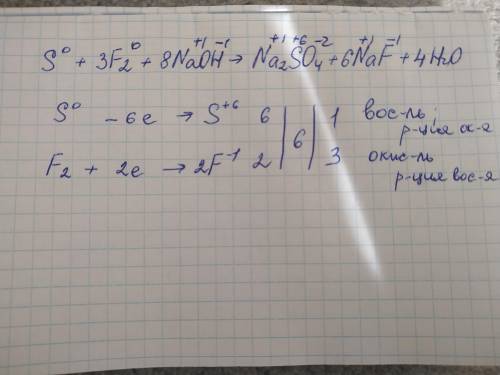 S⁰ + 3F₂⁰ + 8Na⁺¹OH⁻¹ → Na₂⁺¹S⁺⁶O₄⁻² + 6Na⁺¹F⁻¹ + 4H₂O
S⁰ - 6e → S⁺⁶ 6 | 6 | 1 вос-ль;
р-ция ок-я
F₂ + 2e → 2F⁻¹ 2 | 3 окис-ль
р-ция вос-я